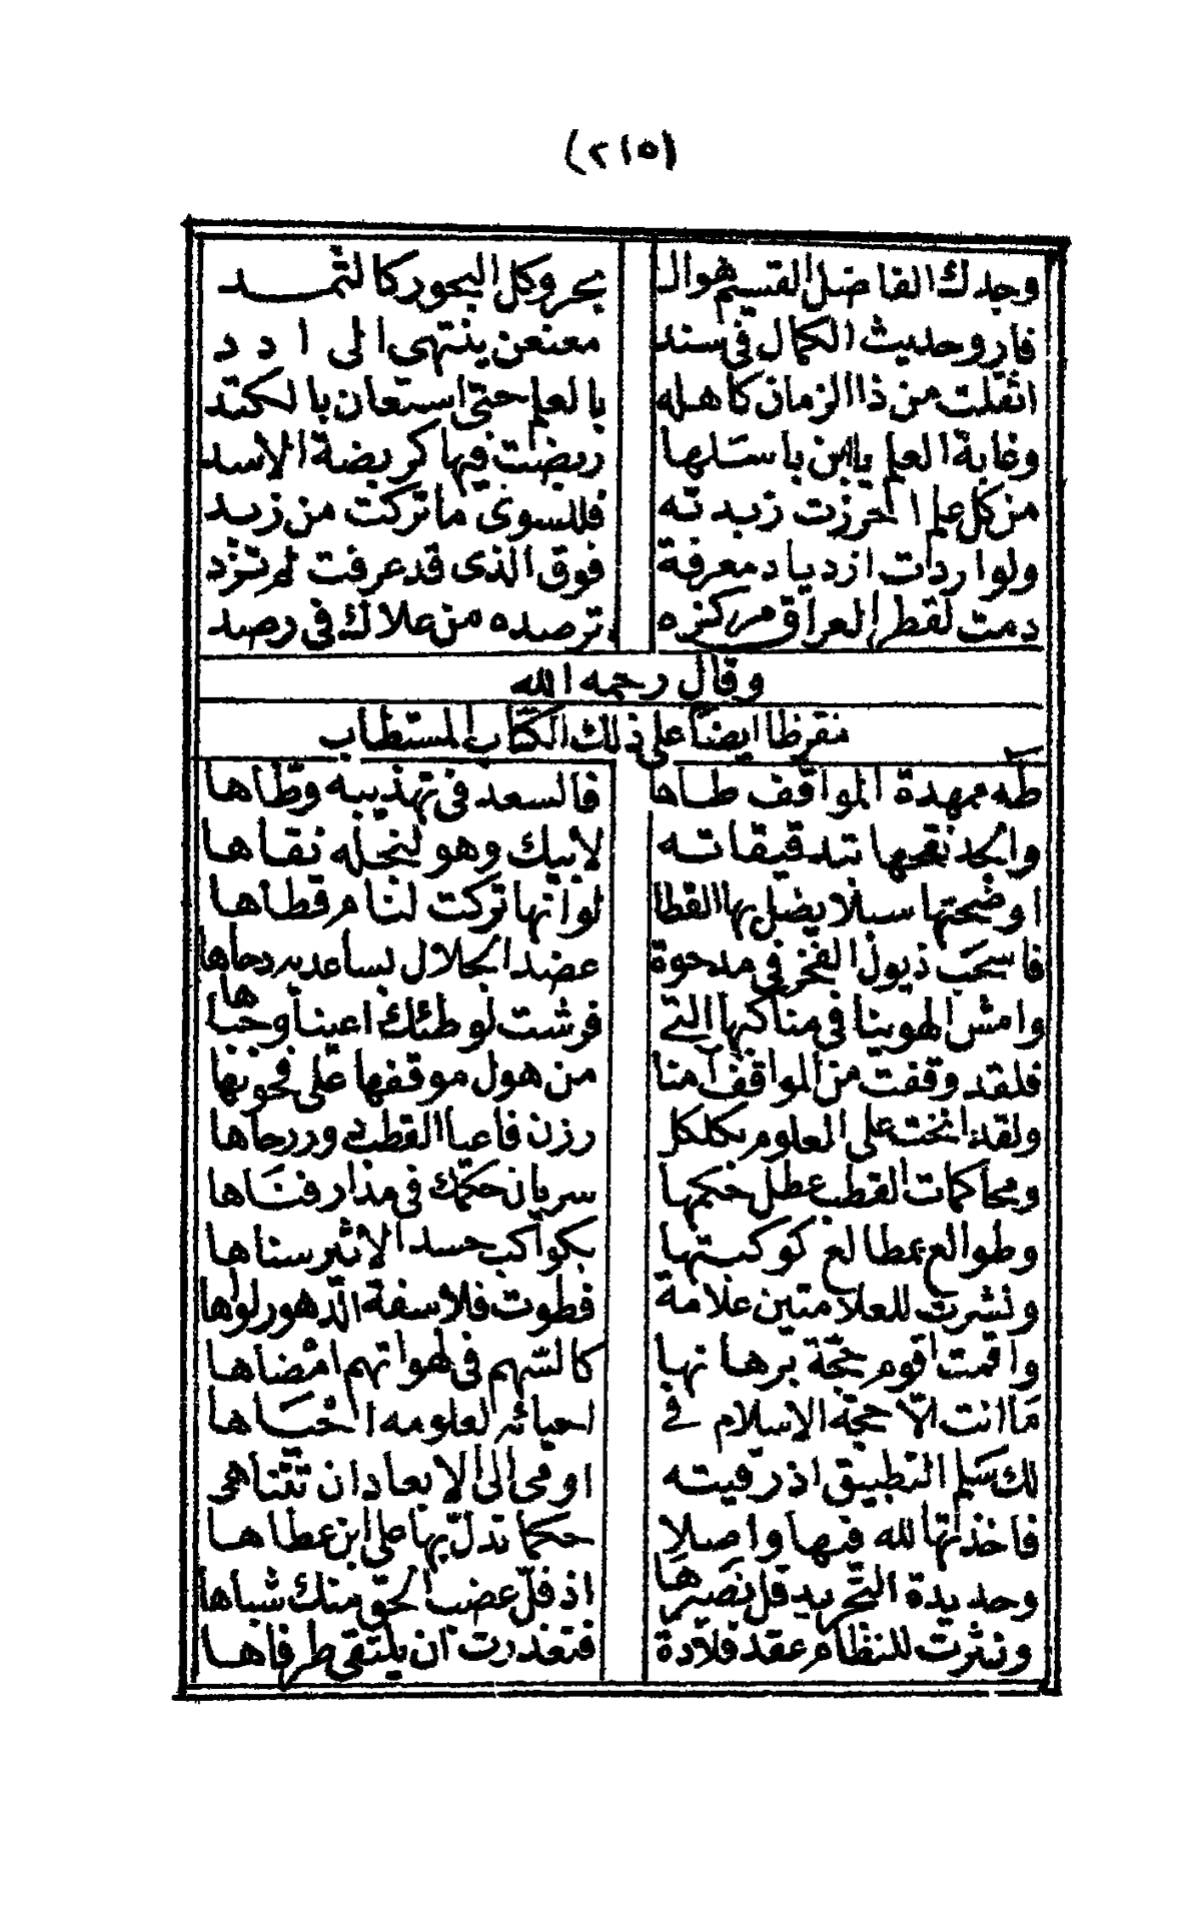 (٢١٥)
وجدك الفاضل القسيم هو الـ بحر وكل البحور كالثمد
فارو حديث الكمال في سند معنعن ينتهى الى ادد
اثقلت من ذا الزمان كاهله بالعلم حتى استعان بالكتد
وغابة العلم يا ابن باسلها ربضت فيها كربضة الاسد
من كل علم احرزت زبدته فللسوى ما تركت من زبد
ولو اردت ازدياد معرفة فوق الذى قد عرفت لم تزد
دمت لقطر العراق مركزه ترصده من علاك في رصد
وقال رحمه الله
مقرظا ايضا على ذلك الكتاب المستطاب
طه ممهدة المواقف طاها فالسعد في تهذيبه وطاها
والجد نقحها بتدقيقاته لابيك وهو لنجله نقاها
اوضحتها سبلا يضل بها القطا لو انها تركت لنام قطاها
فاسحب ذيول الفخر في مدحوة عضد الجلال بساعديه دحاها
وامش الهوينا في مناكبها التي فرشت لوطئك اعينا وجباها
فلقد وقفت من المواقف آمنا من هول موقفها على
ولقد انخت على العلوم بكلكل رزن فاعيا القطب دور رحاها
ومحاكمات القطب عطل حكمها سريان حكمك في مذار فتاها
وطوالع بمطالع كوكبتها بكواكب حسد الاثير سناها
ونشرت للعلامتين علامة فطوت فلاسفة الدهور لواها
واقمت اقوم حجة برهانها كالسهم في لهواتهم امضاها
ما انت الا حجة الاسلام في احيائه لعلومه احياها
لك سلم التطبيق اذ رقيته اوفى الى الابعاد ان تتناهى
فاخذتها لله فيها واصلا حكما تدل بها على ابن عطاها
وحديدة التجريد فل نصيرها اذ فل عضب الحق منك شباها
ونثرت للنظام عقد قلادة فتعذرت ان يلتقى طرفاها